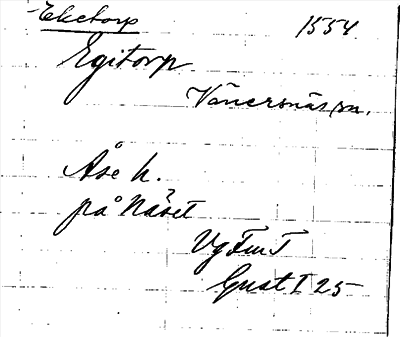 Eketorp 1554
Egitorp
Vänersnäs sn.
Åse h.
på Näset
Vg Fur T
Gust I 25